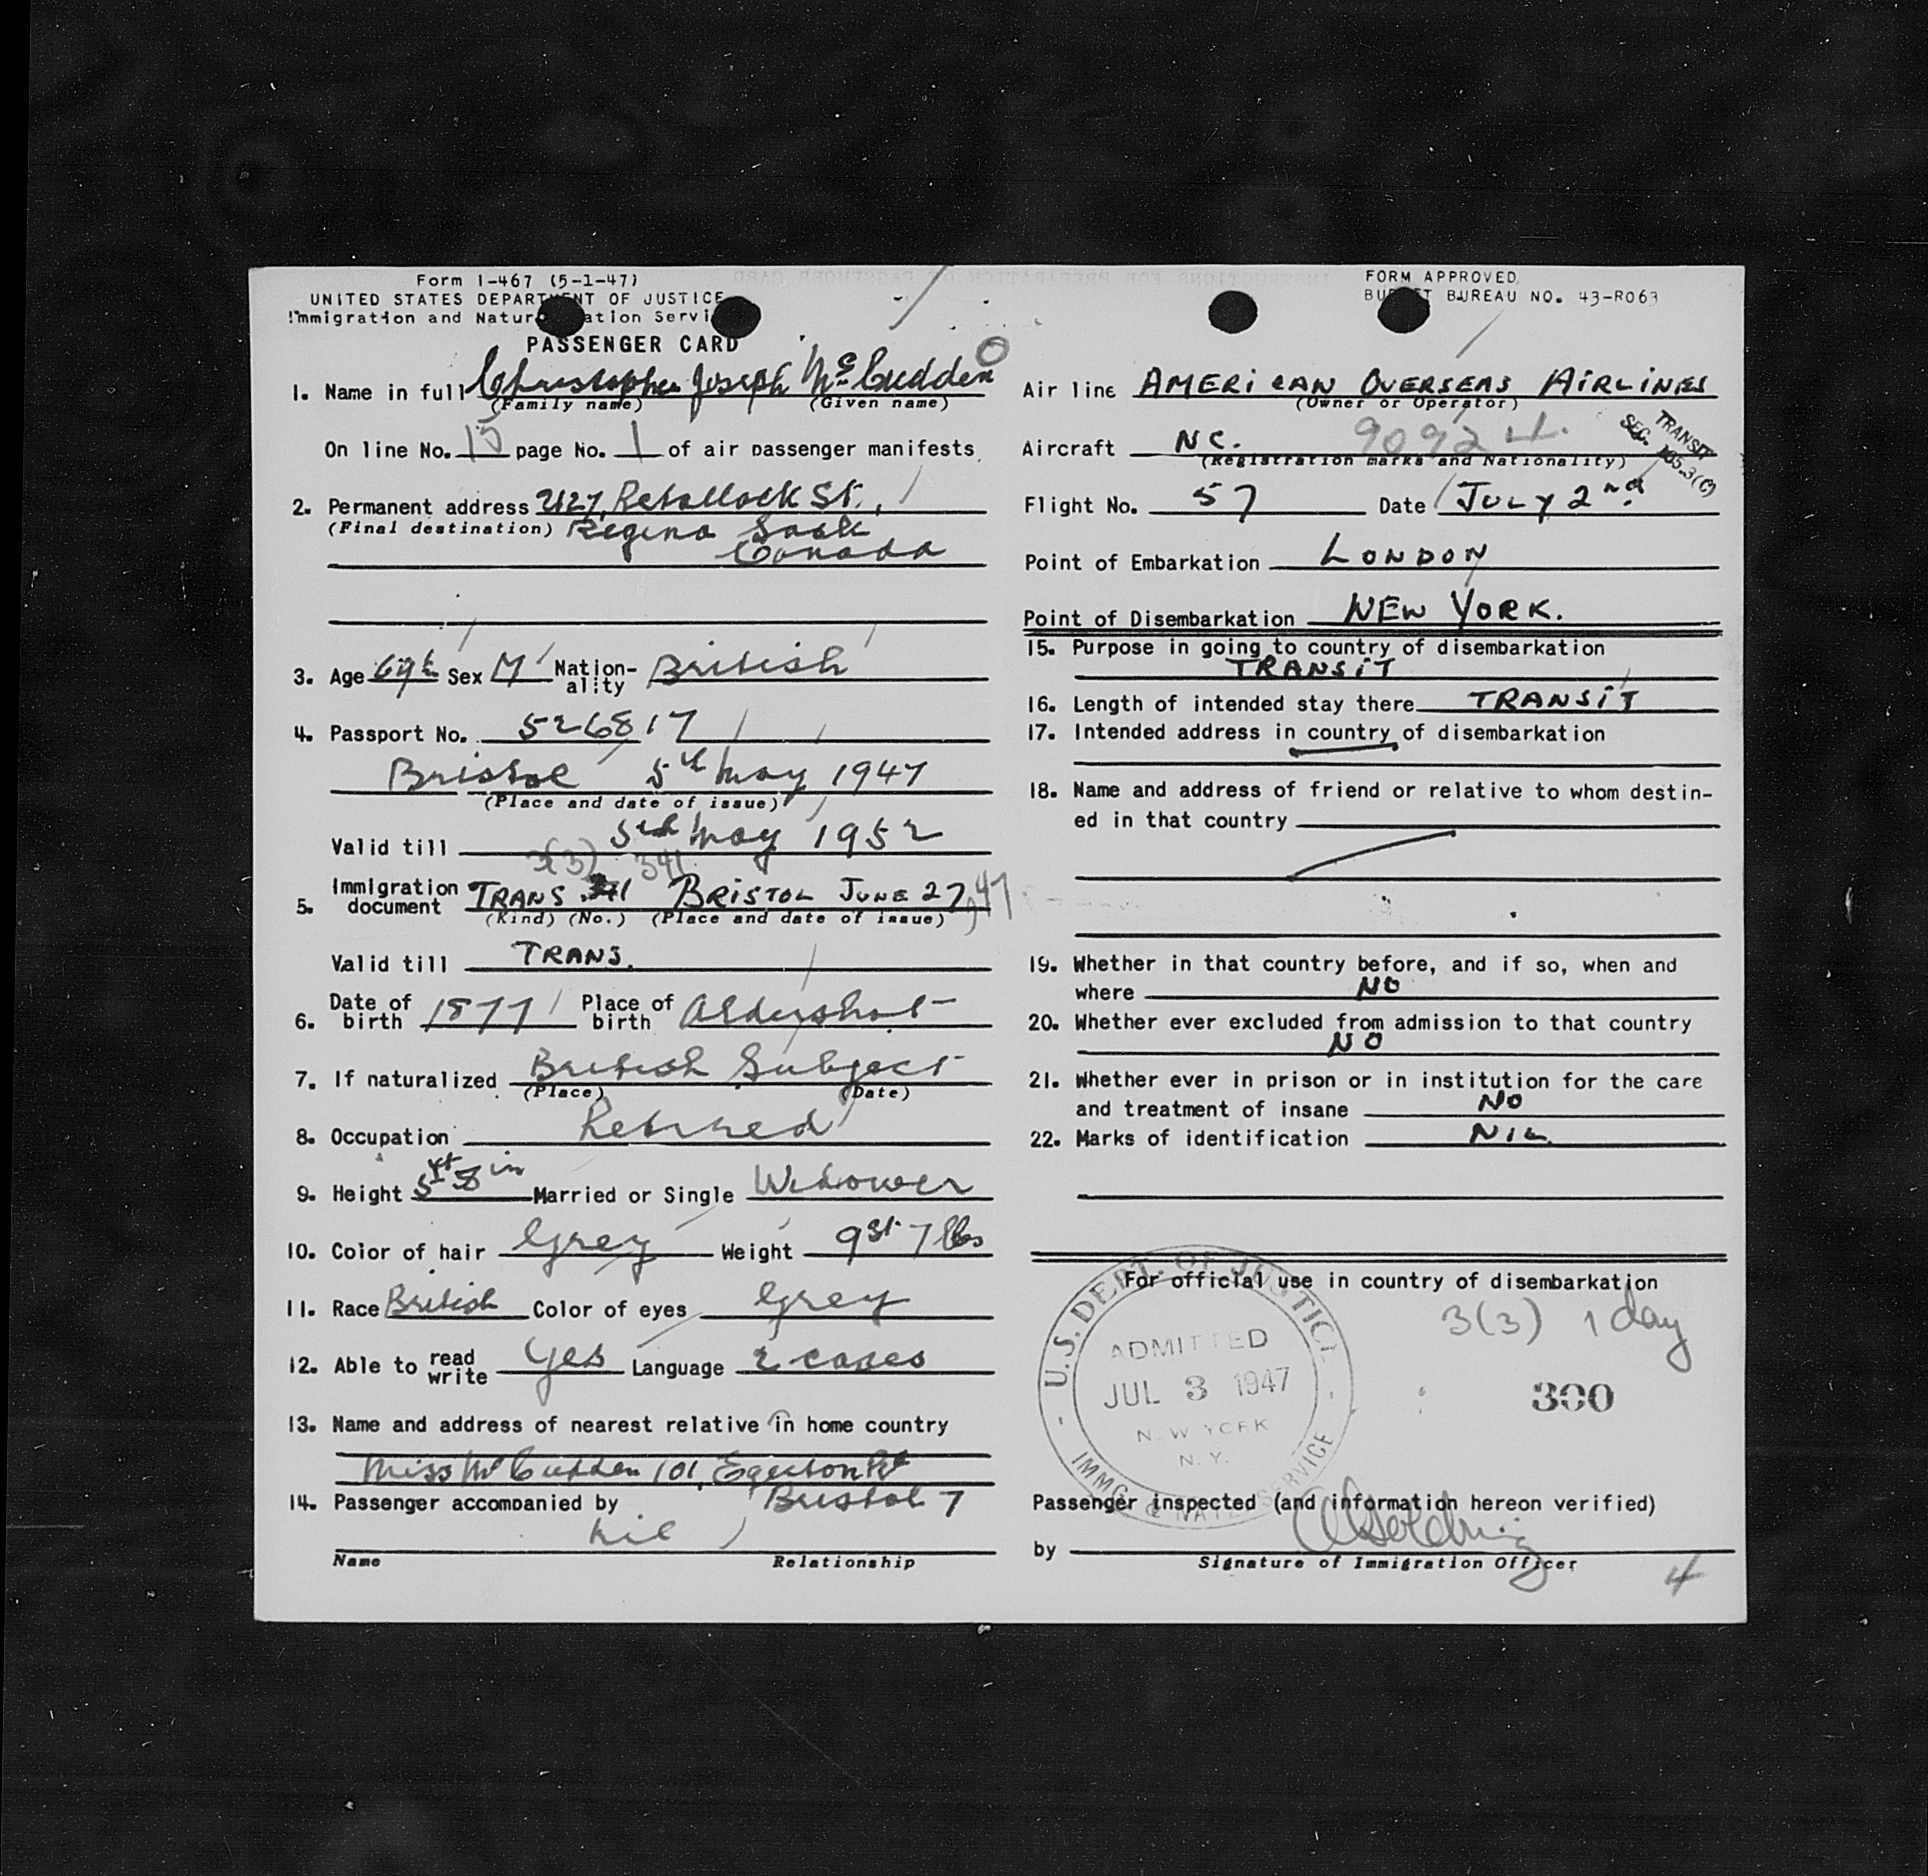 Form I-467 (5-1-47)
UNITED STATES DEPARTMENT OF JUSTICE
Immigration and Naturalization Service
PASSENGER CARD
1. Name in full Christopher Joseph McCudden
(Family name) (Given name)
On line No. 15 page No. 1 of air passenger manifests.
2. Permanent address Retallack St.,
(Final destination) Regina Sask
Canada
3. Age Sex M Nation-ality British
4. Passport No. 526817
Bristol 5th May 1947
(Place and date of issue)
Valid till May 1952
3(3) 341
5. Immigration document TRANS. 341 BRISTOL JUNE 27, 47
(Kind) (No.) (Place and date of issue)
Valid till TRANS.
6. Date of birth 1877 Place of birth Aldershot
7. If naturalized British Subject
(Place) (Date)
8. Occupation Retired
9. Height 5ft 8in Married or Single Widower
10. Color of hair Grey Weight 9st 7lbs
11. Race British Color of eyes Grey
12. Able to read write Yes Language 2 cases
13. Name and address of nearest relative in home country
Miss McCudden 101, Egerton Rd
Bristol 7
14. Passenger accompanied by
Nil
Name Relationship
FORM APPROVED
BUDGET BUREAU NO. 43-R063
Air line AMERICAN OVERSEAS AIRLINES
(Owner or Operator)
TRANSIT
SEC.
Aircraft NC. 90924.
(Registration marks and Nationality)
Flight No. 57 Date JULY 2nd.
Point of Embarkation LONDON
Point of Disembarkation NEW YORK.
15. Purpose in going to country of disembarkation
TRANSIT
16. Length of intended stay there TRANSIT
17. Intended address in country of disembarkation
18. Name and address of friend or relative to whom destin-
ed in that country
19. Whether in that country before, and if so, when and
where NO
20. Whether ever excluded from admission to that country
NO
21. Whether ever in prison or in institution for the care
and treatment of insane NO
22. Marks of identification NIL
For official use in country of disembarkation
3(3) 1 day
300
U.S. DEPT. OF JUSTICE
ADMITTED
JUL 3 1947
NEW YORK
N.Y.
IMMG. & NATZ. SERVICE
Passenger inspected (and information hereon verified)
by
Signature of Immigration Officer
4